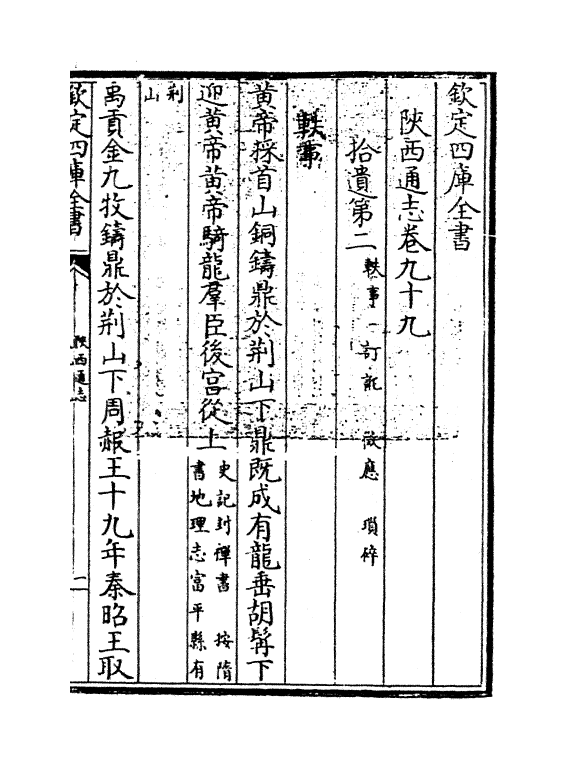 欽定四庫全書
陝西通志卷九十九
拾遺第二 軼事 訂訛 徵應 瑣碎
軼事
黄帝採首山銅鑄鼎於荆山下鼎既成有龍垂胡髯下
迎黄帝黄帝騎龍羣臣後宫從上 史記封禪書 按隋
書地理志富平縣有
荆
山
禹貢金九牧鑄鼎於荆山下周赧王十九年秦昭王取
欽定四庫全書
陝西通志